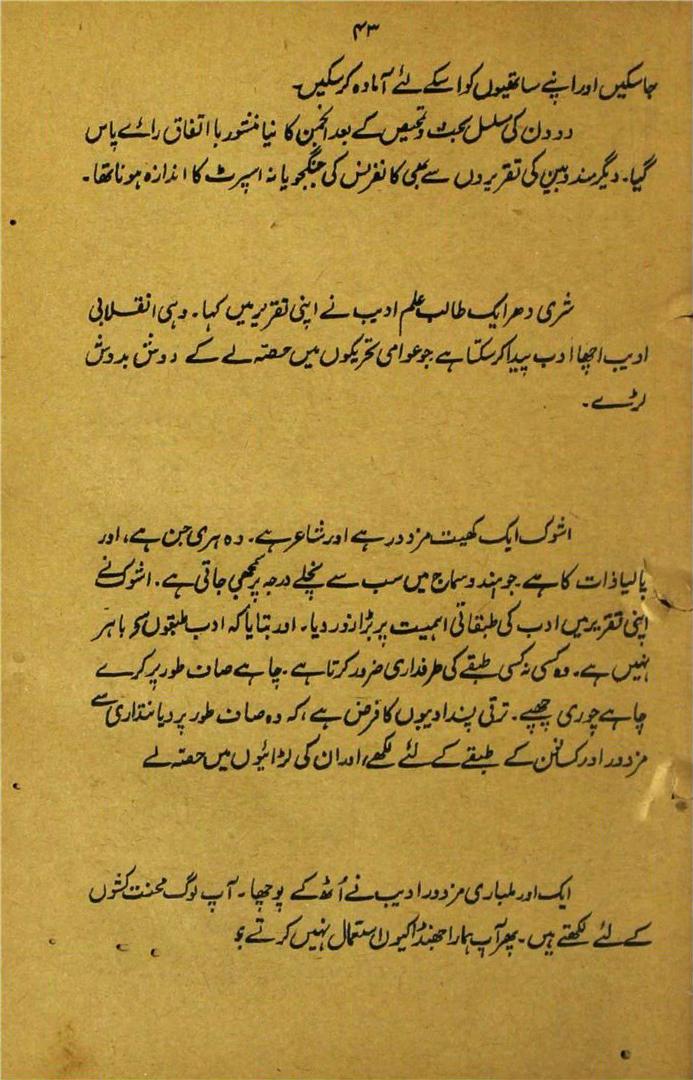 ۴۳
جاسکیں اور اپنے ساتھیوں کو اسکے لئے آمادہ کرسکیں۔
دو دن کی مسلسل بحث و تمحیص کے بعد انجمن کا نیا منشور با اتفاق رائے پاس
گیا۔ دیگر مندوبین کی تقریروں سے بھی کانفرنس کی جنگجویانہ اسپرٹ کا اندازہ ہوتا تھا۔
شری دھر ایک طالب علم ادیب نے اپنی تقریر میں کہا۔ وہی انقلابی
ادیب اچھا ادب پیدا کرسکتا ہے جو عوامی تحریکوں میں حصّہ لے کے دوش بدوش
لڑے۔
اشوک ایک کھیت مزدور ہے اور شاعر ہے۔ وہ ہری جن ہے، اور
پالیا ذات کا ہے۔ جو ہندو سماج میں سب سے نچلے درجہ پر سمجھی جاتی ہے۔ اشوک نے
اپنی تقریر میں ادب کی طبقاتی اہمیت پر بڑا زور دیا۔ اور بتایا کہ ادب طبقوں سے باہر
نہیں ہے۔ وہ کسی نہ کسی طبقے کی طرفداری ضرور کرتا ہے۔ چاہے صاف طور پر کرے
چاہے چوری چھپے۔ ترقی پسند ادیبوں کا فرض ہے، کہ وہ صاف طور پر دیانتداری سے
مزدور اور کسانوں کے طبقے کے لئے لکھے، اور ان کی لڑائیوں میں حصّہ لے
ایک اور ملباری مزدور ادیب نے اُٹھ کے پوچھا۔ آپ لوگ محنت کشوں
کے لئے لکھتے ہیں۔ پھر آپ ہمارا جھنڈا کیوں استعمال نہیں کرتے؟